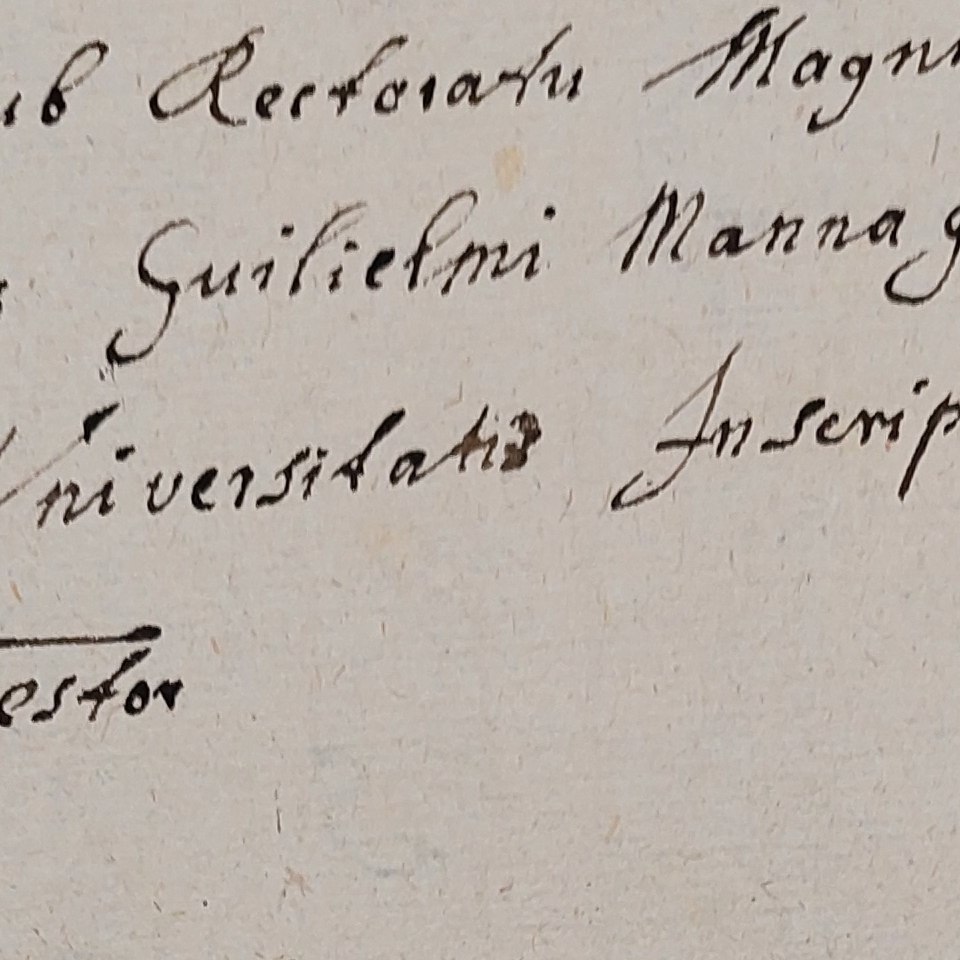 ub Rectoratu Magni
Guilielmi Manna g
Universitatis Inscrip
estor